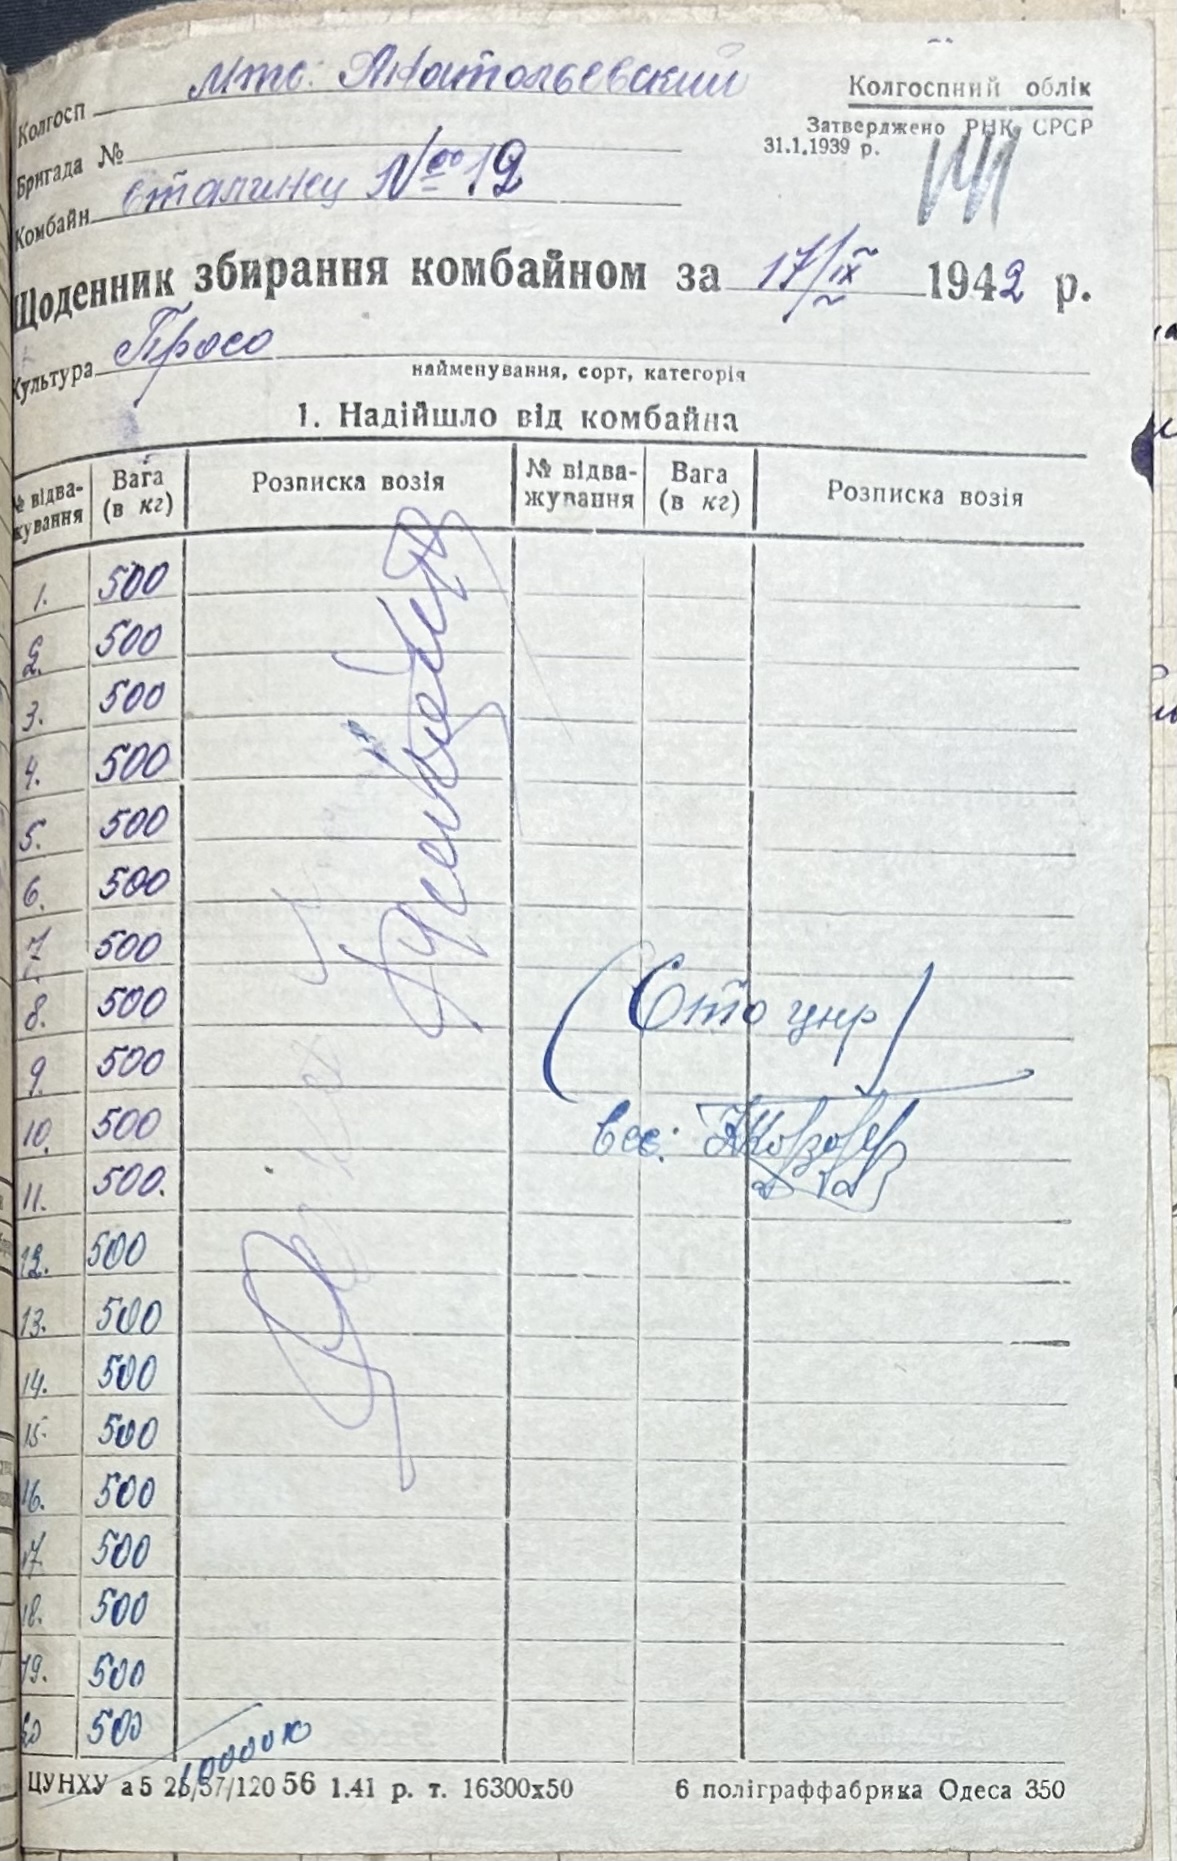 Колгосп Мтс: Анатольевский
Колгоспний облік
Затверджено РНК СРСР
31.1.1939 р.
Бригада №
Комбайн Сталинец № 12
Щоденник збирання комбайном за 17/IX 1942 р.
Культура Просо
найменування, сорт, категорія
1. Надійшло від комбайна
№ відва-жування Вага (в кг) Розписка возія № відва-жування Вага (в кг) Розписка возія
1. 500
2. 500
3. 500
4. 500
5. 500
6. 500
7 500
8. 500
9. 500
10. 500
11. 500.
12. 500
13. 500
14. 500
15 500
16. 500
17. 500
18. 500
19. 500
20 500
(Сто цнр)
вес:
10000 к
ЦУНХУ а5 26/57/120 56 1.41 р. т. 16300х50 6 поліграффабрика Одеса 350